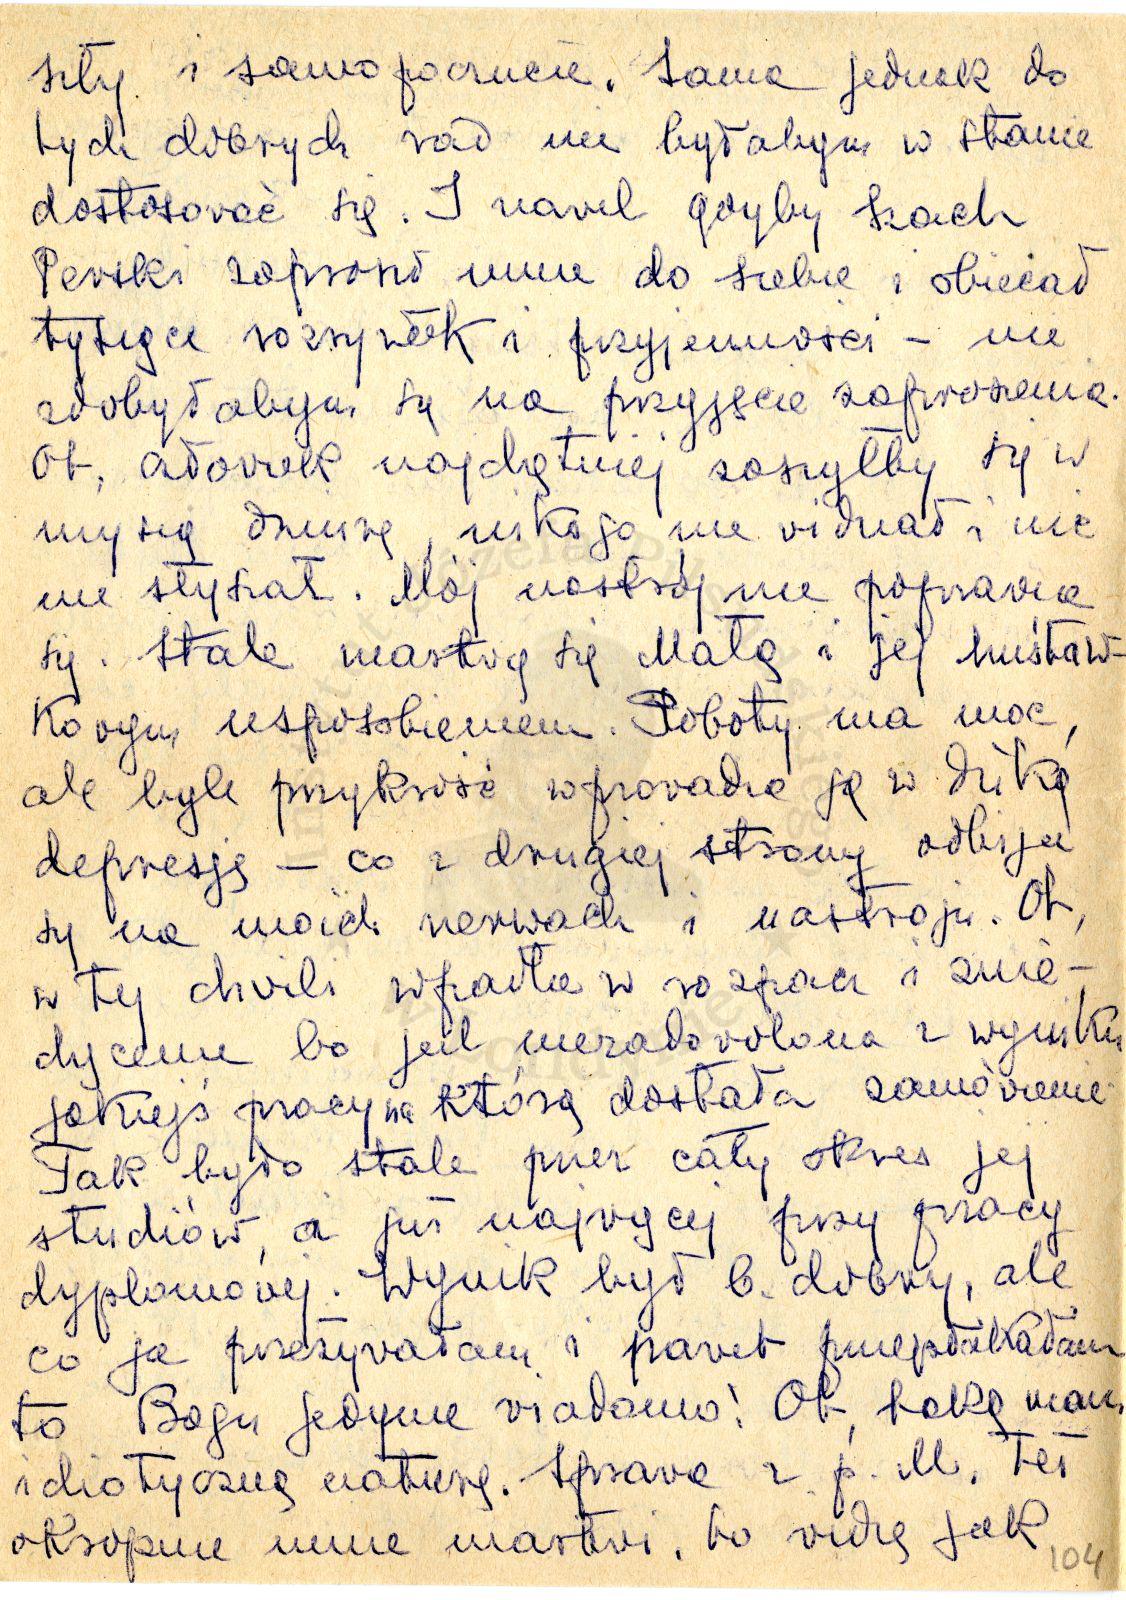 siły i samopoczucie. Sama jednak do
tych dobrych rad nie byłabym w stanie
dostosować się. I nawet gdyby Szach
Perski zaprosił mnie do siebie i obiecał
tysiące rozrywek i przyjemności – nie
zdobyłabym się na przyjęcie zaproszenia.
Ot, człowiek najchętniej zaszyłby się w
mysią dziurę, nikogo nie widział i nic
nie słyszał. Mój nastrój nie poprawia
się. Stale martwię się Małą i jej huśtaw-
kowym usposobieniem. Roboty ma moc,
ale byle przykrość wprowadza ją w dziką
depresję – co z drugiej strony odbija
się na moich nerwach i nastroju. Ot,
w tej chwili wpadła w rozpacz i znie-
chęcenie bo jest niezadowolona z wyniku
jakiejś pracy na którą dostała zamówienie
Tak było stale przez cały okres jej
studiów, a już najwięcej przy pracy
dyplomowej. Wynik był b. dobry, ale
co ja przeżywałam i nawet przepłakałam
to Bogu jedynie wiadomo! Ot, taką mam
idiotyczną naturę. Sprawa z p. M. też
okropnie mnie martwi, bo widzę jak
104